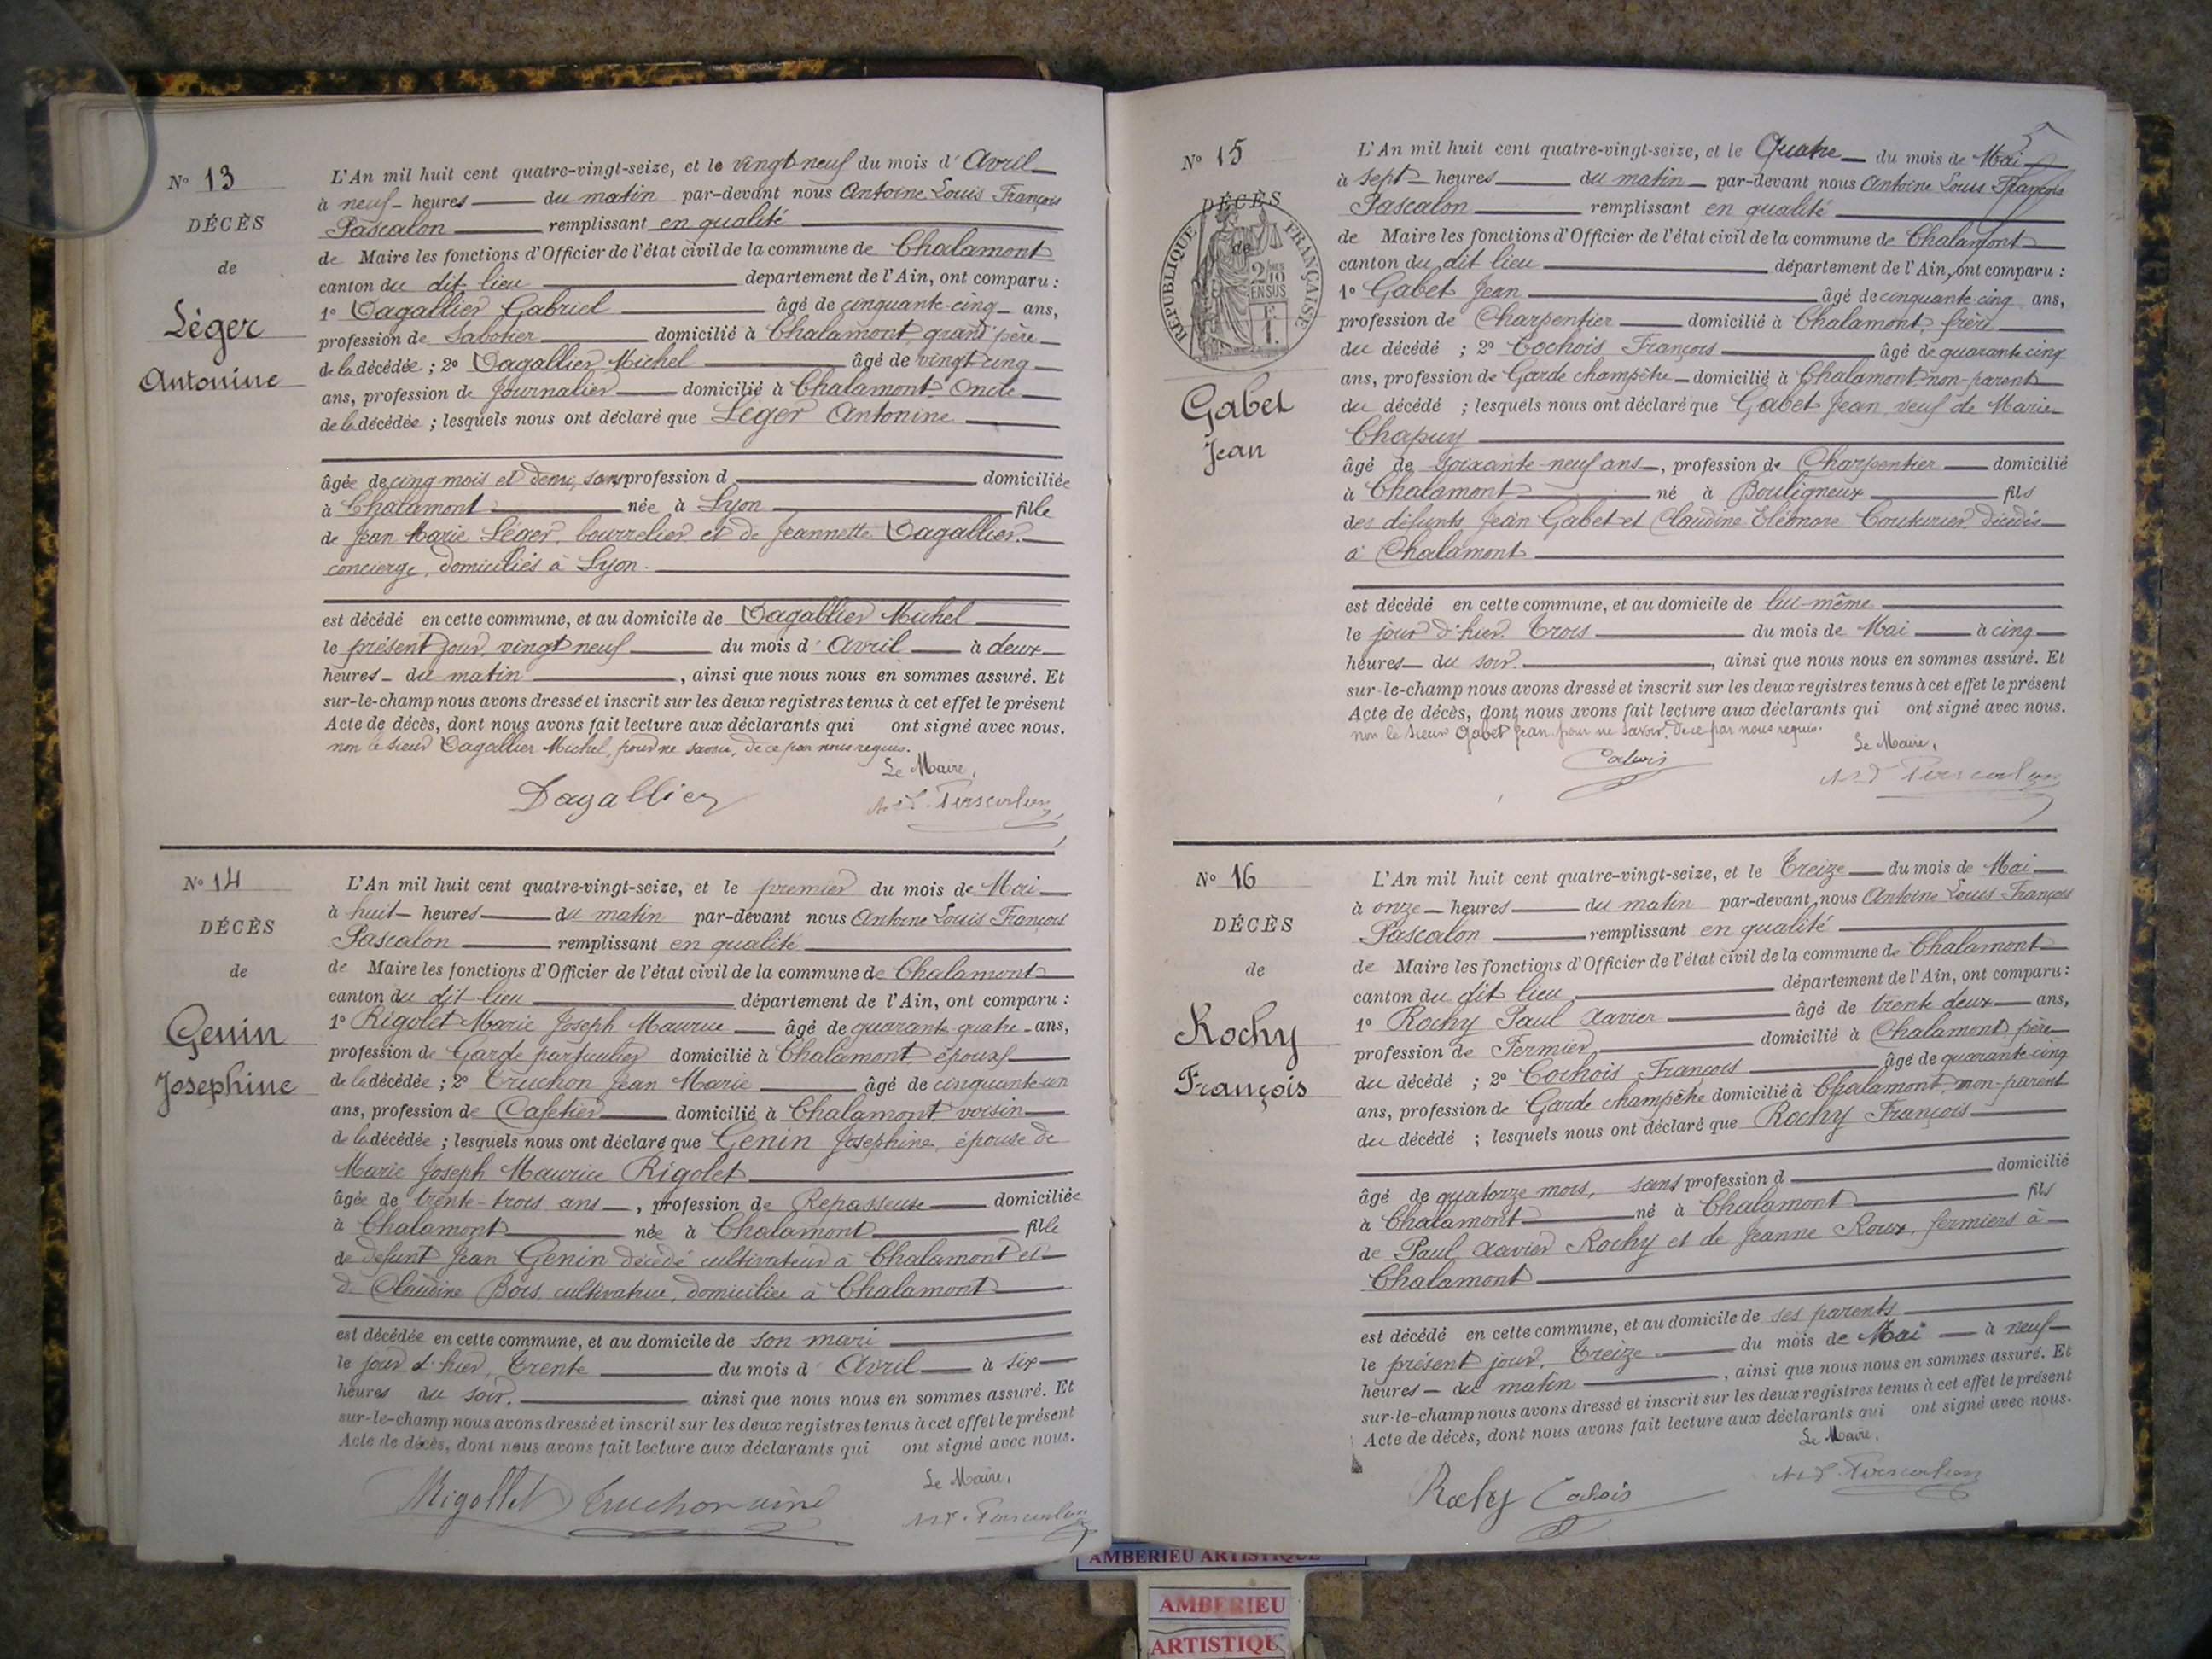 N° 13
DÉCÈS
de
Léger
Antonine
L'An mil huit cent quatre-vingt-seize, et le vingt neuf du mois d' Avril
à neuf heures du matin par-devant nous Antoine Louis François
Pascalon remplissant en qualité
de Maire les fonctions d'Officier de l'état civil de la commune de Chalamont
canton du dit lieu département de l'Ain, ont comparu :
1° Dagallier Gabriel âgé de cinquante-cinq ans,
profession de Sabotier domicilié à Chalamont, grand père
de la décédée ; 2° Dagallier Michel âgé de vingt cinq
ans, profession de Journalier domicilié à Chalamont, Oncle
de la décédée ; lesquels nous ont déclaré que Léger Antonine
âgée de cinq mois et demi, sans profession d domiciliée
à Chalamont née à Lyon fille
de Jean Marie Léger, bourrelier et de Jeannette Dagallier,
concierge, domiciliés à Lyon.
est décédé en cette commune, et au domicile de Dagallier Michel
le présent jour, vingt neuf du mois d' Avril à deux
heures du matin , ainsi que nous nous en sommes assuré. Et
sur-le-champ nous avons dressé et inscrit sur les deux registres tenus à cet effet le présent
Acte de décès, dont nous avons fait lecture aux déclarants qui ont signé avec nous.
non le sieur Dagallier Michel, pour ne savoir, de ce par nous requis.
Le Maire,
Dagallier
N° 14
DÉCÈS
de
Genin
Josephine
L'An mil huit cent quatre-vingt-seize, et le premier du mois de Mai
à huit heures du matin par-devant nous Antoine Louis François
Pascalon remplissant en qualité
de Maire les fonctions d'Officier de l'état civil de la commune de Chalamont
canton du dit lieu département de l'Ain, ont comparu :
1° Rigolet Marie Joseph Maurice âgé de quarante-quatre ans,
profession de Garde particulier domicilié à Chalamont, époux
de la décédée ; 2° Truchon Jean Marie âgé de cinquante-un
ans, profession de Cafetier domicilié à Chalamont voisin
de la décédée ; lesquels nous ont déclaré que Genin Josephine, épouse de
Marie Joseph Maurice Rigolet
âgée de trente-trois ans , profession de Repasseuse domiciliée
à Chalamont née à Chalamont fille
de defunt Jean Genin décédé cultivateur à Chalamont et
de Claudine Bois cultivatrice, domiciliée à Chalamont
est décédée en cette commune, et au domicile de son mari
le jour d'hier, Trente du mois d' Avril à six
heures du soir. ainsi que nous nous en sommes assuré. Et
sur-le-champ nous avons dressé et inscrit sur les deux registres tenus à cet effet le présent
Acte de décès, dont nous avons fait lecture aux déclarants qui ont signé avec nous.
Le Maire,
Rigollet Truchon
5
N° 15
DÉCÈS
de
RÉPUBLIQUE FRANÇAISE
2/10
EN SUS
Gabet
Jean
L'An mil huit cent quatre-vingt-seize, et le Quatre du mois de Mai
à sept heures du matin par-devant nous Antoine Louis François
Pascalon remplissant en qualité
de Maire les fonctions d'Officier de l'état civil de la commune de Chalamont
canton du dit lieu département de l'Ain, ont comparu :
1° Gabet Jean âgé de cinquante-cinq ans,
profession de Charpentier domicilié à Chalamont, frère
du décédé ; 2° Cochois François âgé de quarante cinq
ans, profession de Garde champêtre domicilié à Chalamont non-parent
du décédé ; lesquels nous ont déclaré que Gabet Jean veuf de Marie
Chapuy
âgé de soixante-neuf ans , profession de Charpentier domicilié
à Chalamont né à Bouligneux fils
des défunts Jean Gabet et Claudine Eléonore Couturier, décédés
à Chalamont
est décédé en cette commune, et au domicile de lui-même
le jour d'hier. Trois du mois de Mai à cinq
heures du soir. , ainsi que nous nous en sommes assuré. Et
sur-le-champ nous avons dressé et inscrit sur les deux registres tenus à cet effet le présent
Acte de décès, dont nous avons fait lecture aux déclarants qui ont signé avec nous.
non le sieur Gabet Jean pour ne savoir, de ce par nous requis.
Le Maire,
Cochois
N° 16
DÉCÈS
de
Rochy
François
L'An mil huit cent quatre-vingt-seize, et le Treize du mois de Mai
à onze heures du matin par-devant nous Antoine Louis François
Pascalon remplissant en qualité
de Maire les fonctions d'Officier de l'état civil de la commune de Chalamont
canton du dit lieu département de l'Ain, ont comparu :
1° Rochy Paul Xavier âgé de trente deux ans,
profession de Fermier domicilié à Chalamont, père
du décédé ; 2° Cochois François âgé de quarante-cinq
ans, profession de Garde champêtre domicilié à Chalamont, non-parent
du décédé ; lesquels nous ont déclaré que Rochy François
âgé de quatorze mois, sans profession d domicilié
à Chalamont né à Chalamont fils
de Paul Xavier Rochy et de Jeanne Roux, fermiers à
Chalamont
est décédé en cette commune, et au domicile de ses parents
le présent jour, Treize du mois de Mai à neuf
heures du matin , ainsi que nous nous en sommes assuré. Et
sur-le-champ nous avons dressé et inscrit sur les deux registres tenus à cet effet le présent
Acte de décès, dont nous avons fait lecture aux déclarants qui ont signé avec nous.
Le Maire,
Rochy Cochois
AMBERIEU ARTISTIQUE
AMBERIEU
ARTISTIQU